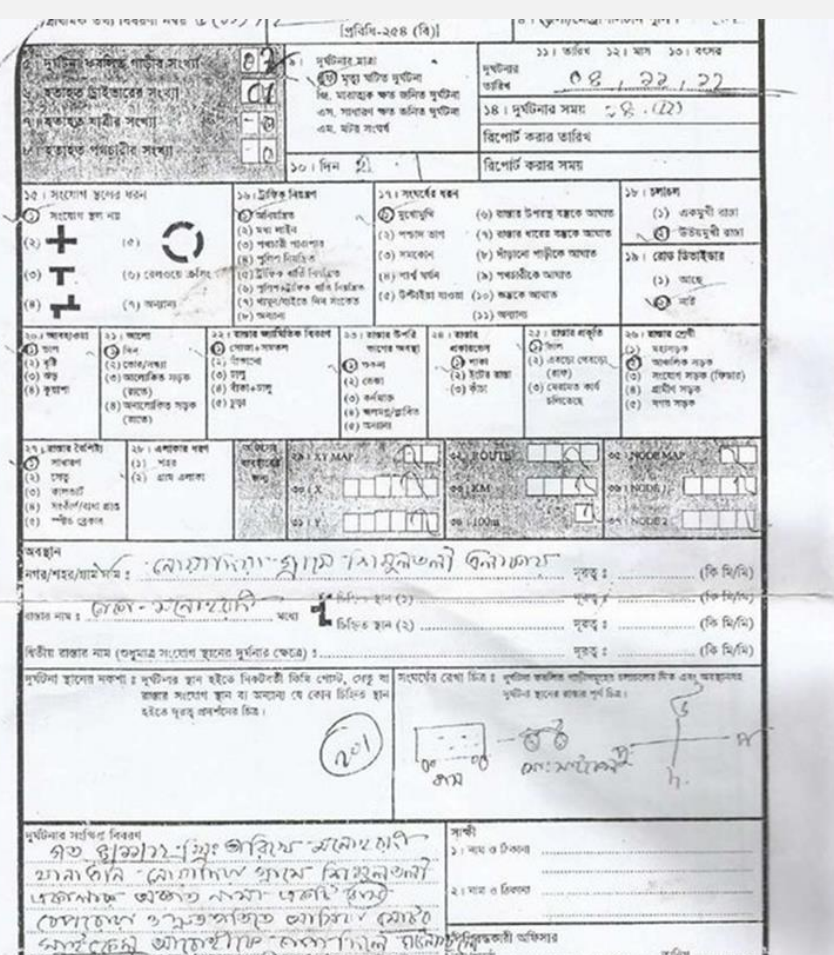 প্রাথমিক তথ্য বিবরণী নম্বর
[প্রবিধি-২৫৪ (বি)]
৫। দুর্ঘটনা কবলিত গাড়ীর সংখ্যা 02
৬। হতাহত ড্রাইভারের সংখ্যা 01
৭। হতাহত যাত্রীর সংখ্যা
৮। হতাহত পথচারীর সংখ্যা
৯। দুর্ঘটনার মাত্রা
মৃত্যু ঘটিত দুর্ঘটনা
জি. মারাত্মক ক্ষত জনিত দুর্ঘটনা
এস. সাধারণ ক্ষত জনিত দুর্ঘটনা
এম. মটর সংঘর্ষ
১০। দিন
১১। তারিখ ১২। মাস ১৩। বৎসর
দুর্ঘটনার
তারিখ
১৪। দুর্ঘটনার সময়
রিপোর্ট করার তারিখ
রিপোর্ট করার সময়
১৫। সংযোগ স্থলের ধরন
(১) সংযোগ স্থল নয়
(২)
(৩)
(৪)
(৫)
(৬) রেলওয়ে ক্রসিং
(৭) অন্যান্য
১৬। ট্রাফিক নিয়ন্ত্রণ
(১) অনিয়ন্ত্রিত
(২) মধ্য লাইন
(৩) পথচারী পারাপার
(৪) পুলিশ নিয়ন্ত্রিত
(৫) ট্রাফিক বাতি নিয়ন্ত্রিত
(৬) পুলিশ+ট্রাফিক বাতি নিয়ন্ত্রিত
(৭) থামুন/যাইতে দিন সংকেত
(৮) অন্যান্য
১৭। সংঘর্ষের ধরন
(১) মুখোমুখি
(২) পশ্চাদ ভাগ
(৩) সমকোন
(৪) পার্শ্ব ঘর্ষন
(৫) উল্টাইয়া যাওয়া
(৬) রাস্তার উপরস্থ বস্তুকে আঘাত
(৭) রাস্তার ধারের বস্তুকে আঘাত
(৮) দাঁড়ানো গাড়ীকে আঘাত
(৯) পথচারীকে আঘাত
(১০) জন্তুকে আঘাত
(১১) অন্যান্য
১৮। চলাচল
(১) একমুখী রাস্তা
(২) উভয়মুখী রাস্তা
১৯। রোড ডিভাইডার
(১) আছে
(২) নাই
২০। আবহাওয়া
(১) ভাল
(২) বৃষ্টি
(৩) ঝড়
(৪) কুয়াশা
২১। আলো
(১) দিন
(২) ভোর/সন্ধ্যা
(৩) আলোকিত সড়ক
(রাতে)
(৪) অনালোকিত সড়ক
(রাতে)
২২। রাস্তার জ্যামিতিক বিবরণ
(১) সোজা+সমতল
(২) বাঁকানো
(৩) ঢালু
(৪) বাঁকা+ঢালু
(৫) চূড়া
২৩। রাস্তার উপরি
ভাগের অবস্থা
(১) শুকনা
(২) ভেজা
(৩) কর্দমাক্ত
(৪) জলমগ্ন/প্লাবিত
(৫) অন্যান্য
২৪। রাস্তার
প্রকারভেদ
(১) পাকা
(২) ইটের রাস্তা
(৩) কাঁচা
২৫। রাস্তার প্রকৃতি
(১) ভাল
(২) এবড়ো খেবড়ো
(রাফ)
(৩) মেরামত কার্য
চলিতেছে
২৬। রাস্তার শ্রেণী
(১) মহাসড়ক
আঞ্চলিক সড়ক
(৩) সংযোগ সড়ক (ফিডার)
(৪) গ্রামীণ সড়ক
(৫) নগর সড়ক
২৭। রাস্তার বৈশিষ্ট্য
(১) সাধারণ
(২) সেতু
(৩) কালভার্ট
(৪) সংকীর্ণ/বাধা প্রাপ্ত
(৫) স্পীড ব্রেকার
২৮। এলাকার ধরণ
(১) শহর
(২) গ্রাম এলাকা
২৯। XY MAP
৩০। X
৩১। Y
৩২। ROUTE
৩৩। KM
৩৪। 100m
৩৫। NODE MAP
৩৬। NODE 1
৩৭। NODE 2
অবস্থান
নগর/শহর/গ্রাম নাম ঃ নোয়াদিয়া গ্রামে শিমুলতলী এলাকায় দূরত্ব ঃ (কি মি/মি)
রাস্তার নাম ঃ ঢাকা - মনোহরদী মধ্যে চিহ্নিত স্থান (১) দূরত্ব ঃ (কি মি/মি)
চিহ্নিত স্থান (২) দূরত্ব ঃ (কি মি/মি)
দ্বিতীয় রাস্তার নাম (শুধুমাত্র সংযোগ স্থানের দুর্ঘটনার ক্ষেত্রে) ঃ দূরত্ব ঃ (কি মি/মি)
দুর্ঘটনা স্থানের নকশা ঃ দুর্ঘটনার স্থান হইতে নিকটবর্তী কিমি পোস্ট, সেতু বা
রাস্তার সংযোগ স্থান বা অন্যান্য যে কোন চিহ্নিত স্থান
হইতে দূরত্ব প্রদর্শনের চিত্র।
সংঘর্ষের রেখা চিত্র ঃ দুর্ঘটনা কবলিত গাড়ীসমূহের চলাচলের দিক এবং অবস্থানসহ
দুর্ঘটনা স্থানের রাস্তার পূর্ণ চিত্র।
বাস
মোঃ সাইকেল
দুর্ঘটনার সংক্ষিপ্ত বিবরণ
গত ৪/১১/২২ খ্রিঃ তারিখে মনোহরদী
থানাধীন নোয়াদিয়া গ্রামে শিমুলতলী
এলাকায় অজ্ঞাত নামা একটি বাস
বেপরোয়া ও দ্রুত গতিতে আসিয়া মোটর
সাইকেল আরোহীকে চাপা দিলে
সাক্ষী
১। নাম ও ঠিকানা
২। নাম ও ঠিকানা
অফিসার
তারিখ